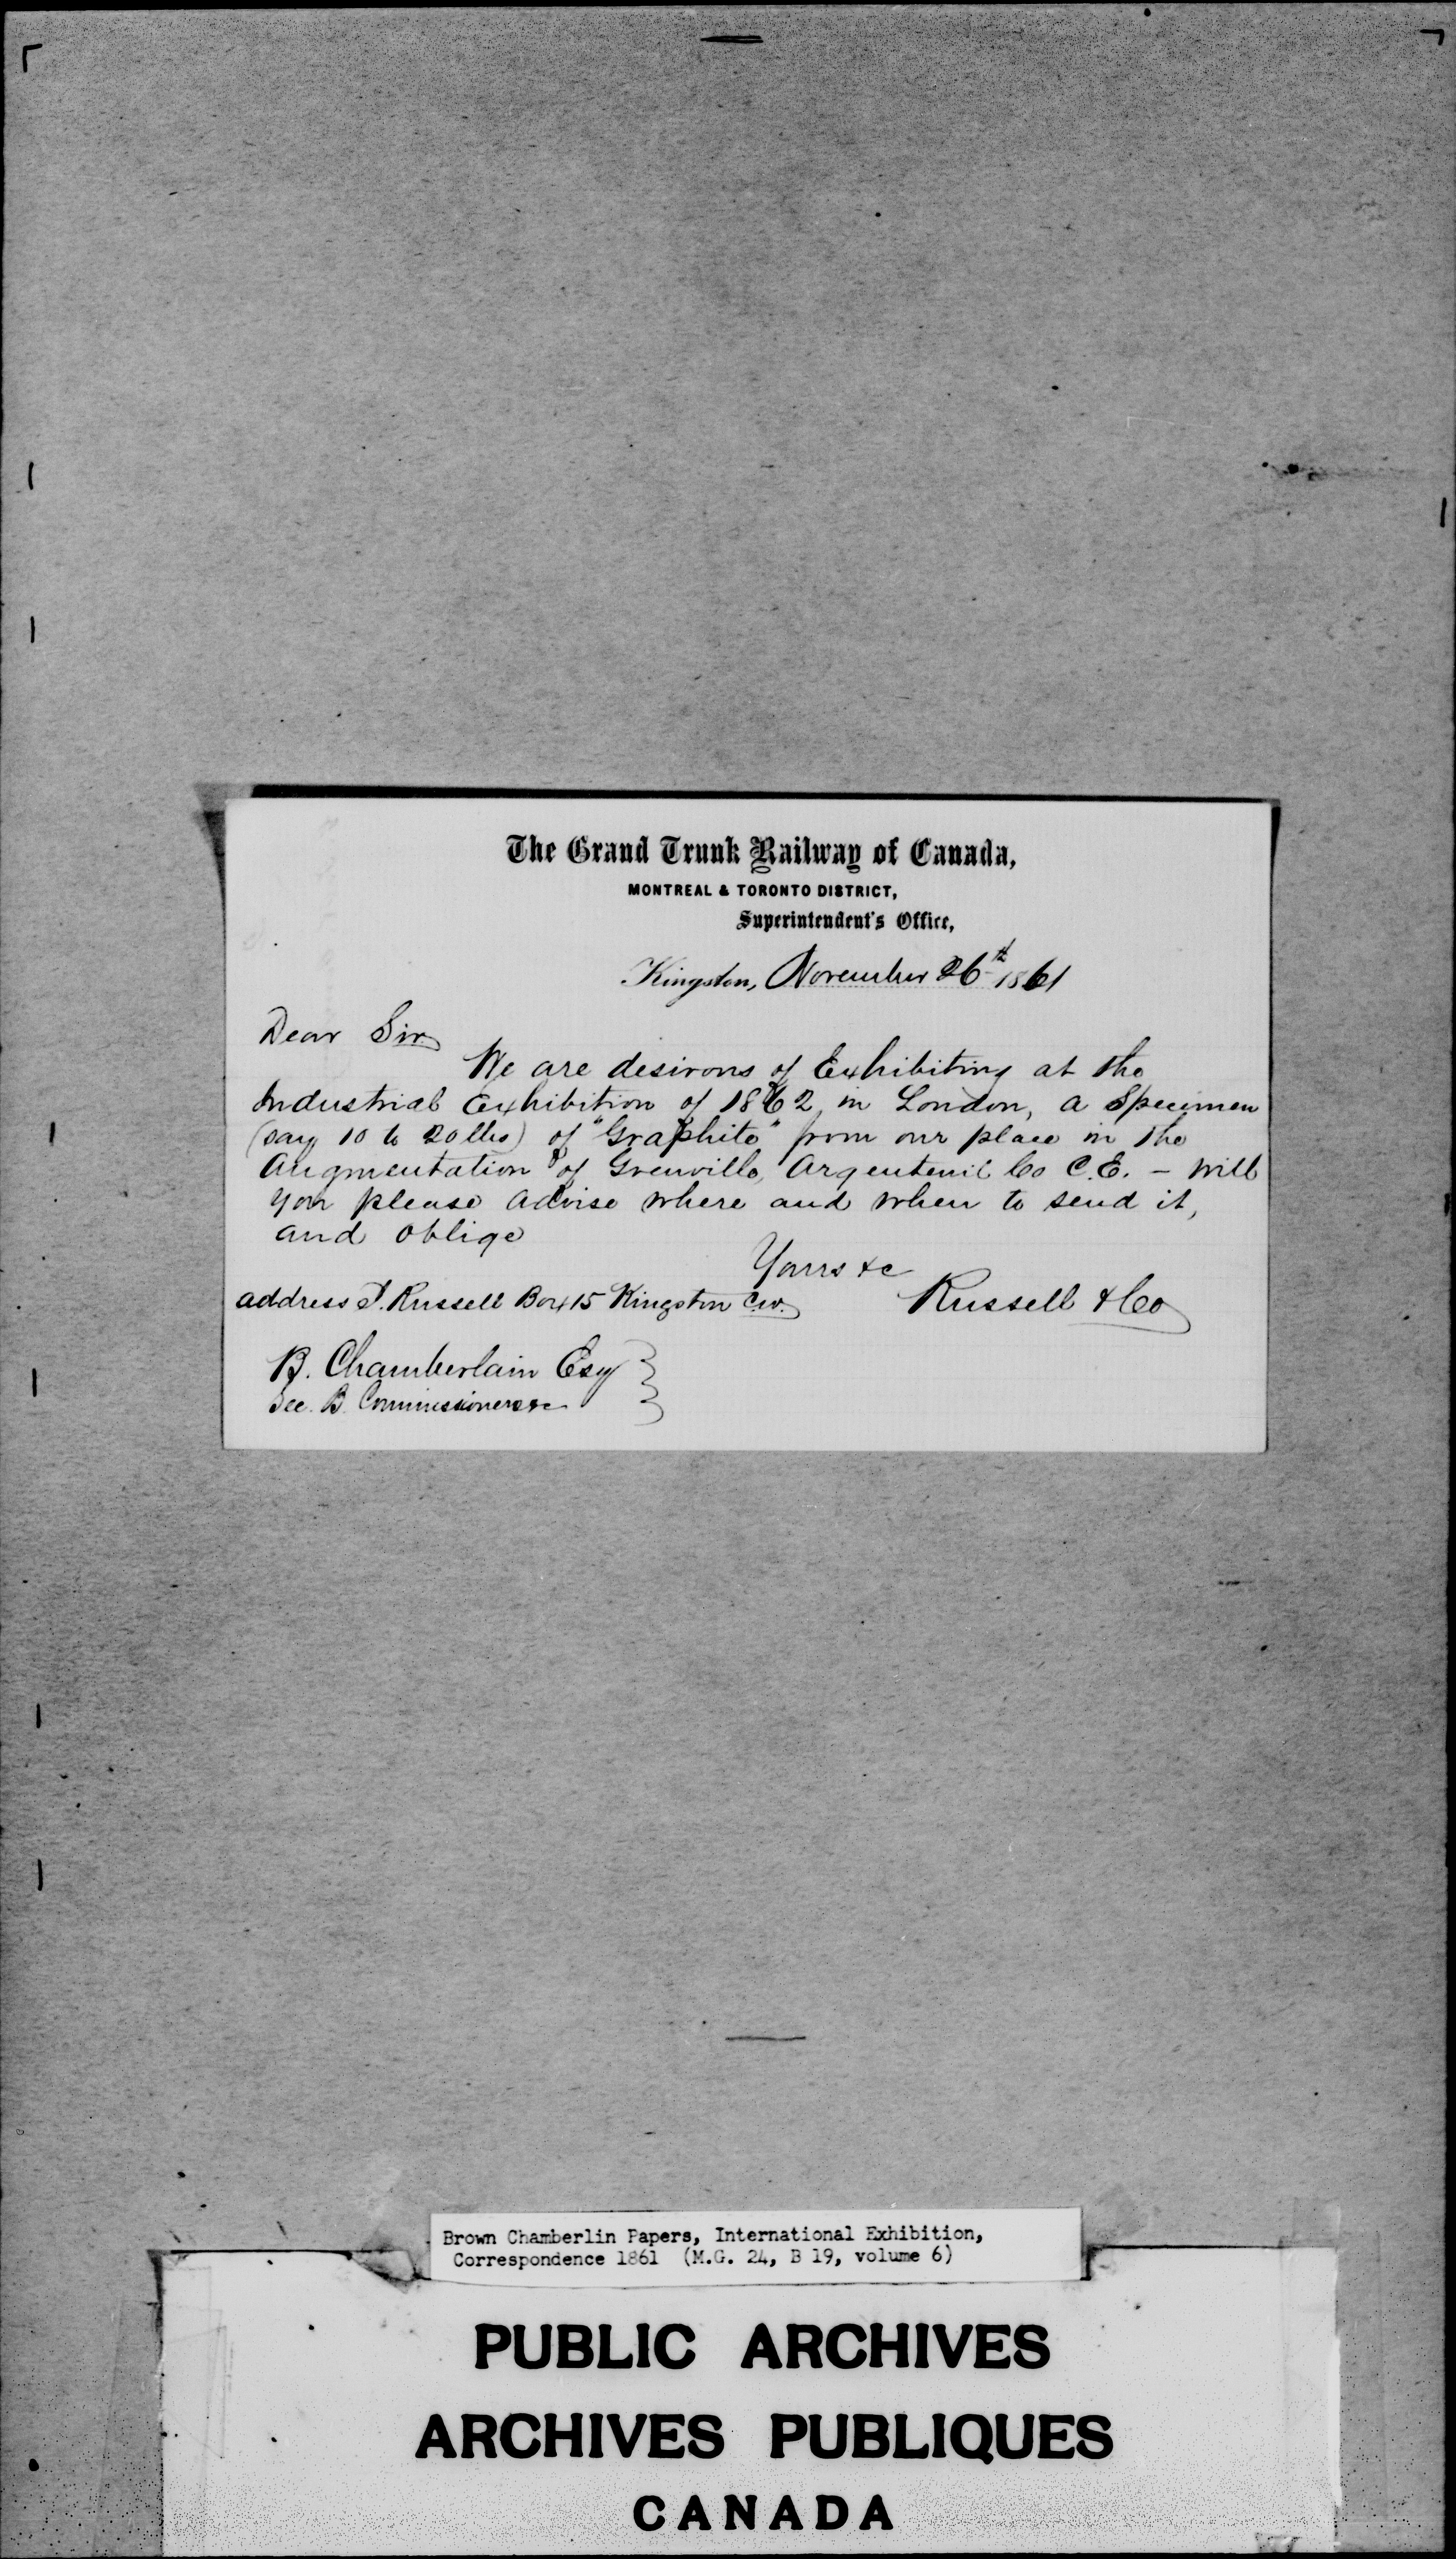 The Grand Trunk Railway of Canada,
MONTREAL & TORONTO DISTRICT,
Superintendent's Office,
Kingston, November 26th 1861
Dear Sir
We are desirous of Exhibiting at the
Industrial Exhibition of 1862, in London, a Specimen
(say 10 to 20 lbs) of "Graphite" from our place in the
Augmentation of Grenville, Argenteuil Co C.E. – Will
you please advise where and when to send it,
and oblige
Yours &c
Russell & Co
address T. Russell Box 15 Kingston C.W.
B. Chamberlain Esq
Sec. B. Commissioners &c
Brown Chamberlin Papers, International Exhibition,
Correspondence 1861 (M.G. 24, B 19, volume 6)
PUBLIC ARCHIVES
ARCHIVES PUBLIQUES
CANADA